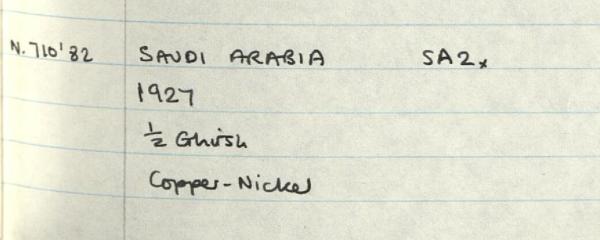 N.710'82 SAUDI ARABIA SA2x
1927
½ Ghirsh
Copper-Nickel